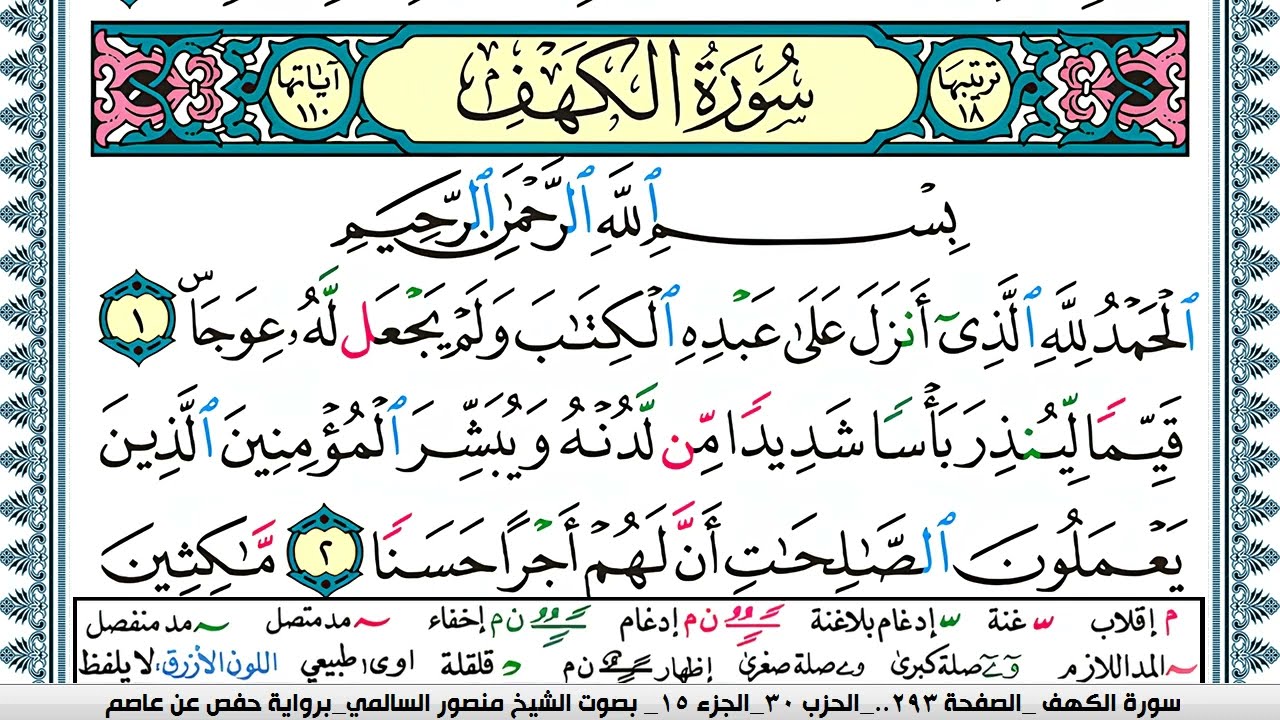 ترتيبها ١٨
سُورَةُ الكَهْفِ
آيَاتها ١١٠
بِسْمِ ٱللَّهِ ٱلرَّحْمَٰنِ ٱلرَّحِيمِ
ٱلْحَمْدُ لِلَّهِ ٱلَّذِىٓ أَنزَلَ عَلَىٰ عَبْدِهِ ٱلْكِتَٰبَ وَلَمْ يَجْعَل لَّهُۥ عِوَجَاۜ ١
قَيِّمًا لِّيُنذِرَ بَأْسًا شَدِيدًا مِّن لَّدُنْهُ وَيُبَشِّرَ ٱلْمُؤْمِنِينَ ٱلَّذِينَ
يَعْمَلُونَ ٱلصَّٰلِحَٰتِ أَنَّ لَهُمْ أَجْرًا حَسَنًا ٢ مَّٰكِثِينَ
م إقلاب س غنة س إدغام بلاغنة ن م إدغام ن م إخفاء مد متصل مد منفصل
المد اللازم وے صلة كبرى وے صلة صغرى إظهار ن م د قلقلة اوى طبيعي اللون الأزرق: لا يلفظ
سورة الكهف _الصفحة ٢٩٣.._الحزب ٣٠_الجزء ١٥_ بصوت الشيخ منصور السالمي_برواية حفص عن عاصم